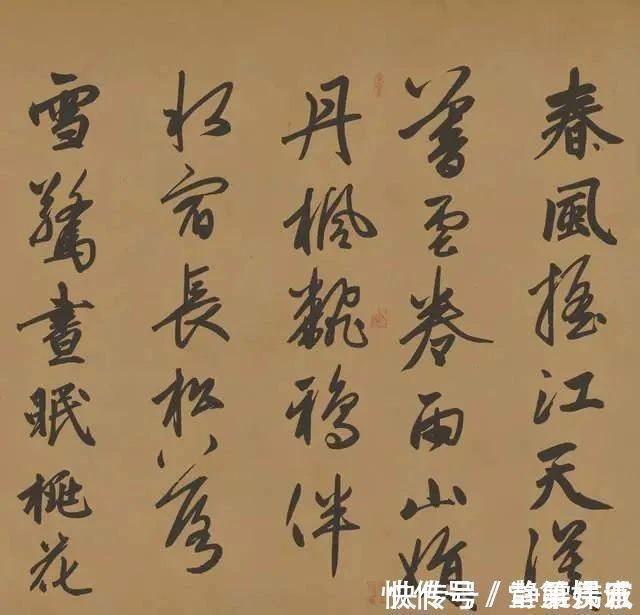 春風搖江天漠
暮雲卷雨山娟
丹楓翻鴉伴
水宿長松落
雪驚晝眠桃花
快传号 /